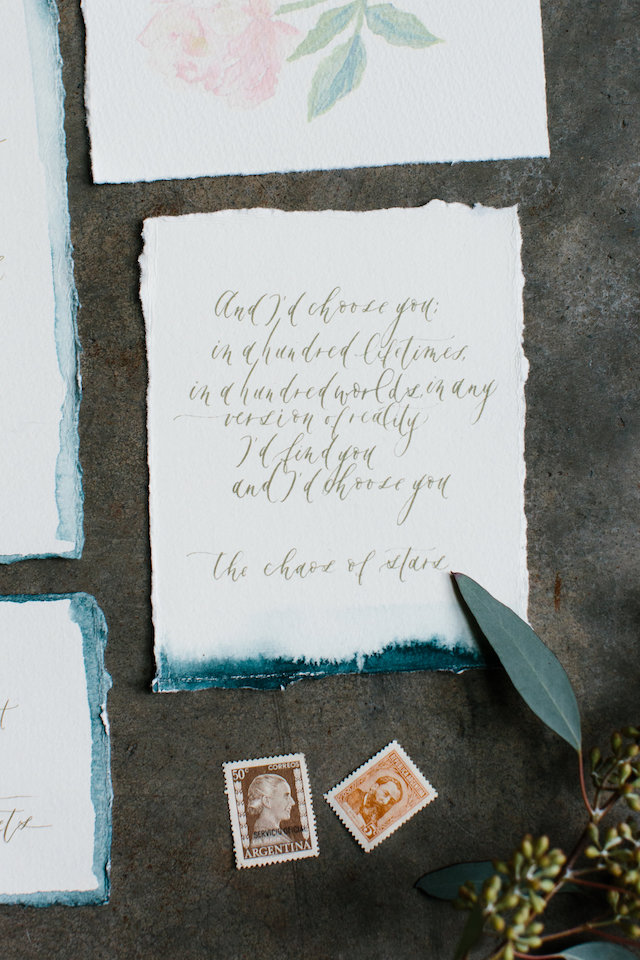 And I'd choose you;
in a hundred lifetimes,
in a hundred worlds, in any
version of reality
I'd find you
and I'd choose you
the chaos of stars
50c CORREOS
SERVICIO OFICIAL
ARGENTINA